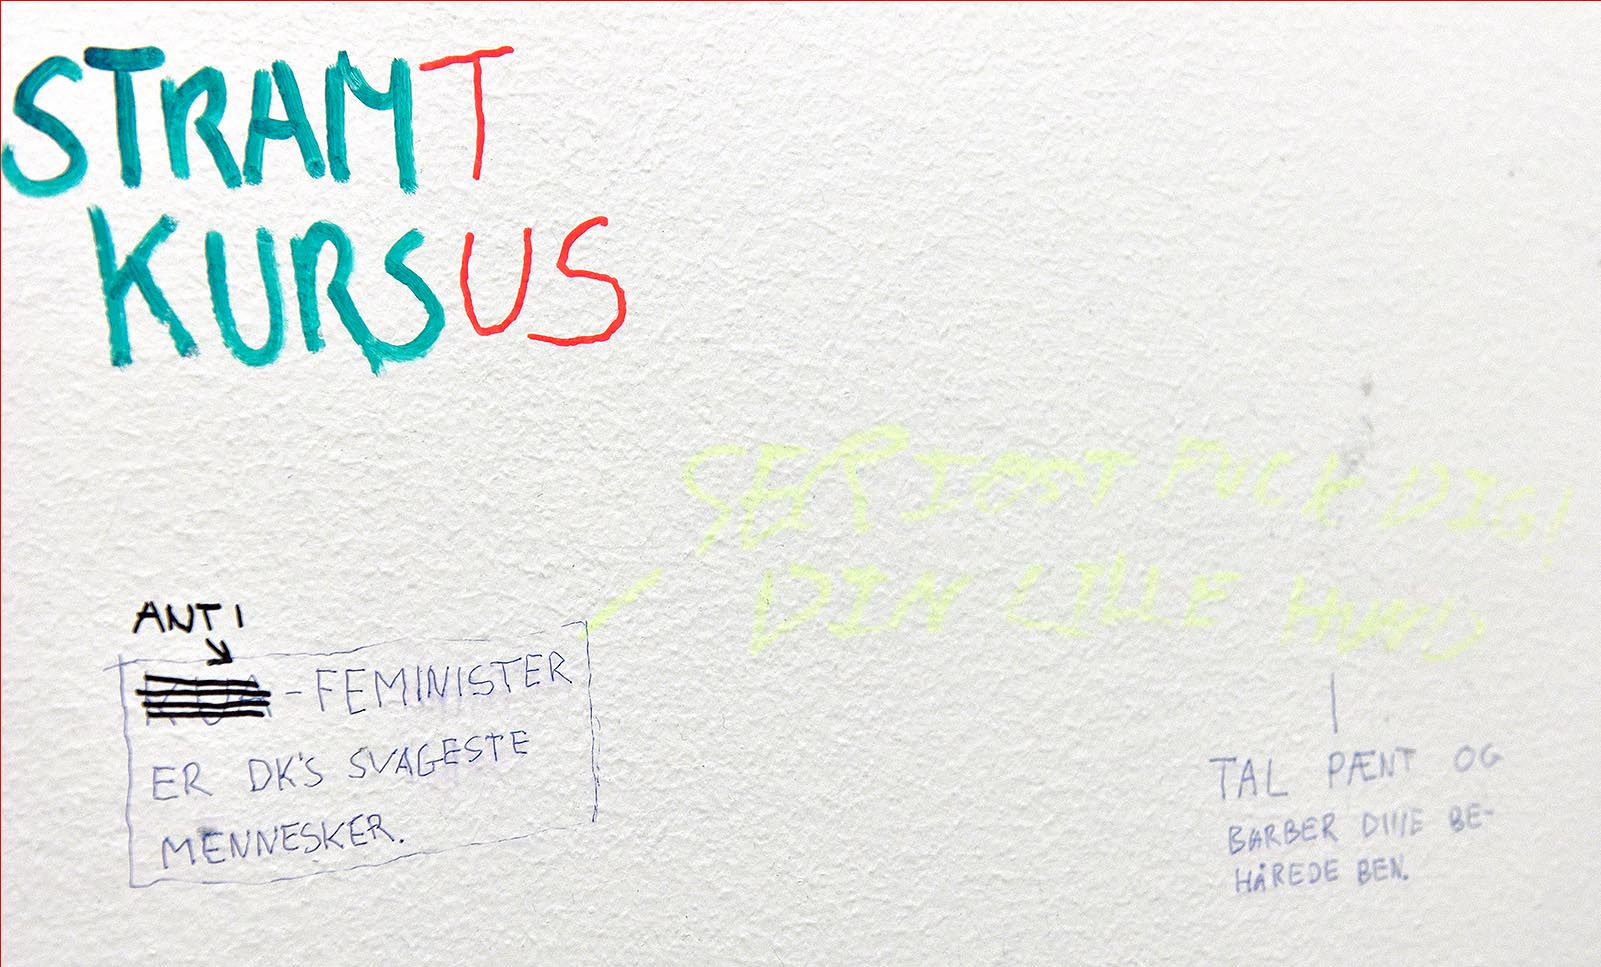 STRAMT
KURSUS
SERIØST FUCK DIG!
DIN LILLE HUND
ANTI
KUA-FEMINISTER
ER DK'S SVAGESTE
MENNESKER.
TAL PÆNT OG
BARBER DINE BE-
HÅREDE BEN.